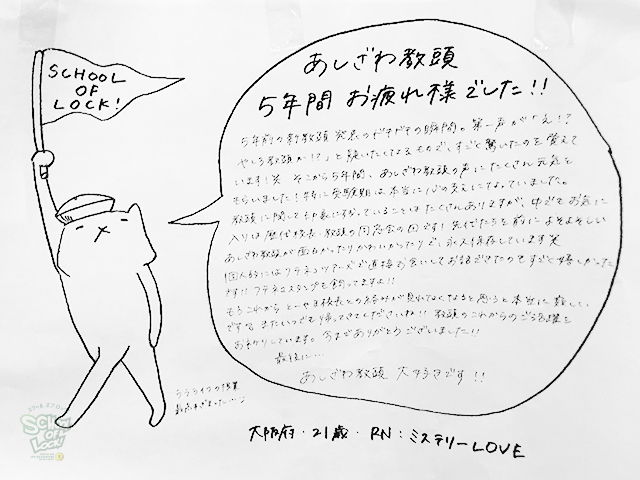 SCHOOL
OF
LOCK!
あしざわ教頭
5年間 お疲れ様でした!!
5年前の新教頭発表のドキドキの瞬間。第一声が「え!?
やしろ教頭か!?」と疑いたくなるもので、すごく驚いたのを覚えて
います!笑 そこから5年間、あしざわ教頭の声にたくさん元気を
もらいました!特に受験期は本当に心の支えになっていました。
教頭に関して印象に残っていることはたくさんありますが、中でもお気に
入りは歴代校長、教頭の同窓会の回です!先代たちを前によそよそしい
あしざわ教頭が面白かったりかわいかったりで、永久保存しています笑
個人的には ツアーズで直接お会いしてお話できたのもすごく嬉しかった
です!!
もうこれから とーやま校長との絡みが見れなくなると思うと本当に寂しい
です。またいつでも帰ってきてくださいね!!教頭のこれからのご活躍を
お祈りしています。今までありがとうございました!!
最後に…
あしざわ教頭 大好きです!!
ラブライブの授業
最高すぎました…
大阪府・21歳・RN:ミステリーLOVE
SCHOOL
OF
LOCK!